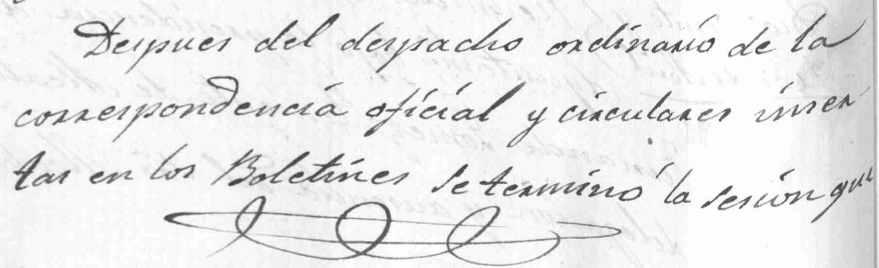 Despues del despacho ordinario de la
correspondencia oficial y circulares inser
tas en los Boletines se terminó la sesión que